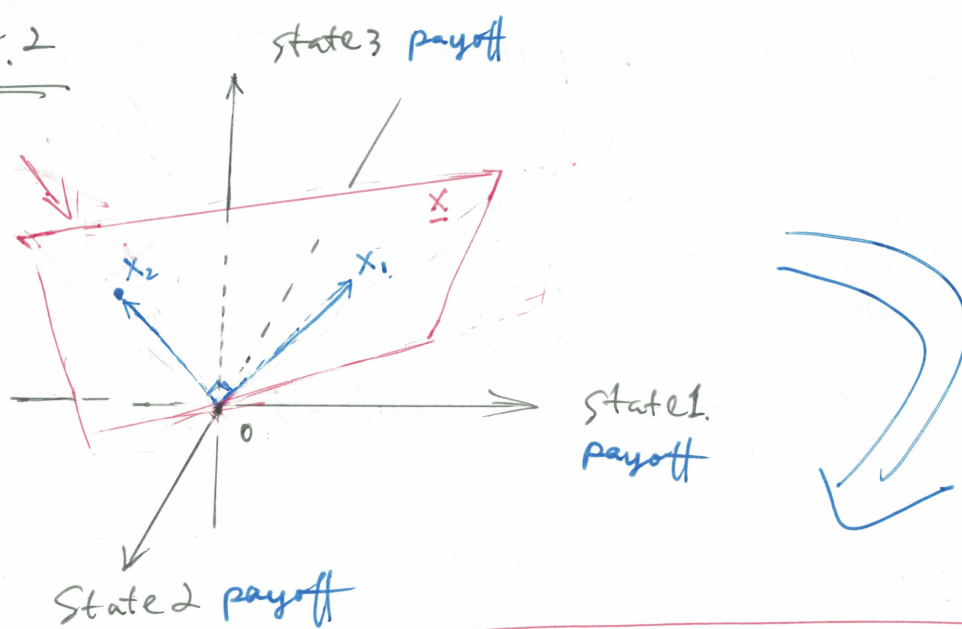 .2
state3 payoff
X
X₂
X₁.
0
state1.
payoff
State2 payoff